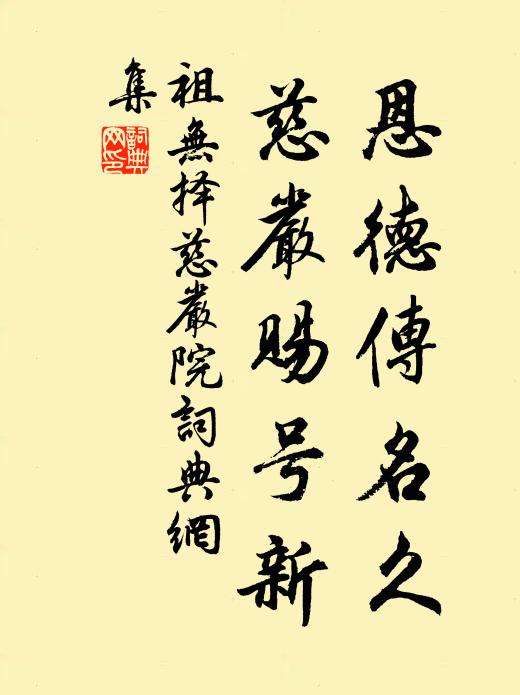 恩德傳名久
慈嚴賜号新
祖無择慈嚴院詞典網
集
詞典
网印